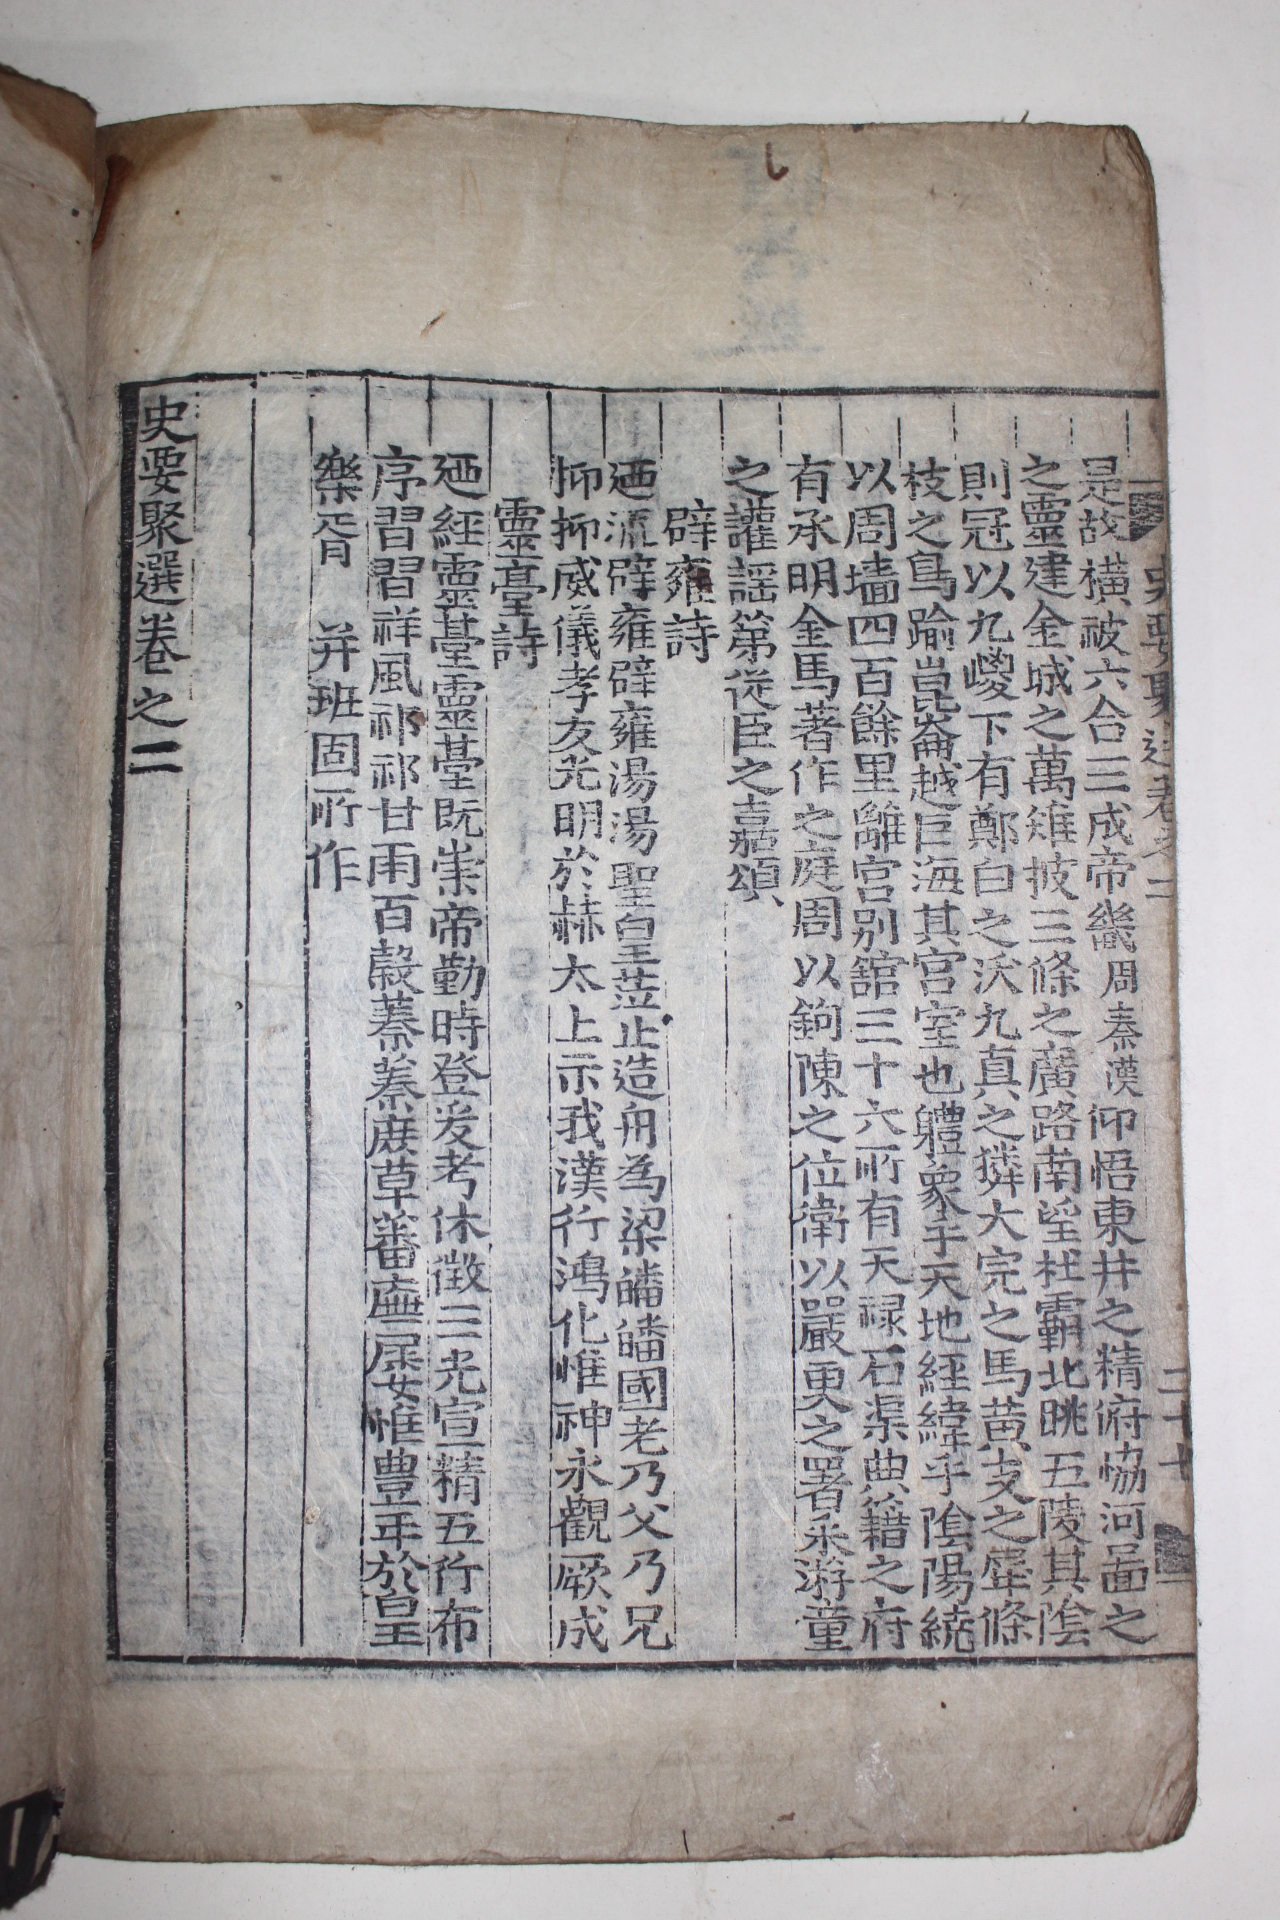 史要聚選卷之二 二十七
是故橫被六合三成帝畿周秦漢仰悟東井之精府恊河啚之
之靈建金城之萬雉披三條之廣路南望杜霸北眺五陵其陰
則冠以九嵕下有鄭白之沃九真之獜大完之馬黃支之犀條
枝之鳥踰崑崙越巨海其宮室也軆象乎天地經緯乎陰陽繞
以周墻四百餘里離宮别舘三十六所有天祿石渠典籍之府
有承明金馬著作之庭周以鉤陳之位衛以嚴更之署采游童
之讙謠第從臣之嘉頌
辟雍詩
廼流辟雍辟雍湯湯聖皇莅止造舟為梁皤皤國老乃父乃兄
抑抑威儀孝友光明於赫太上示我漢行鴻化惟神永觀厥成
靈臺詩
廼經靈臺靈臺既崇帝勤時登爰考休徵三光宣精五行布
序習習祥風祁祁甘雨百穀蓁蓁庶草蕃廡屢惟豊年於皇
樂胥 并班固所作
史要聚選卷之二